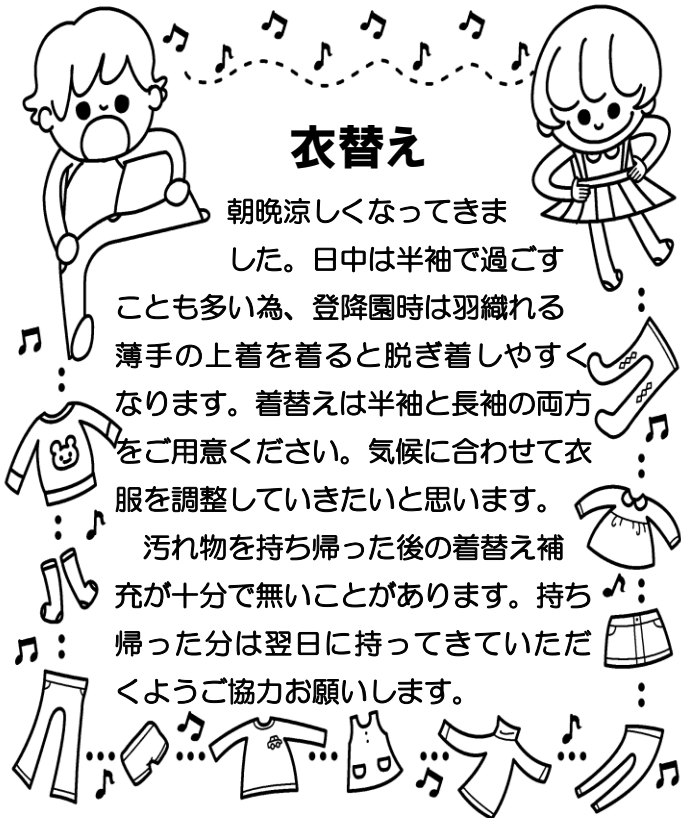 衣替え
朝晩涼しくなってきま
した。日中は半袖で過ごす
ことも多い為、登降園時は羽織れる
薄手の上着を着ると脱ぎ着しやすく
なります。着替えは半袖と長袖の両方
をご用意ください。気候に合わせて衣
服を調整していきたいと思います。
汚れ物を持ち帰った後の着替え補
充が十分で無いことがあります。持ち
帰った分は翌日に持ってきていただ
くようご協力お願いします。